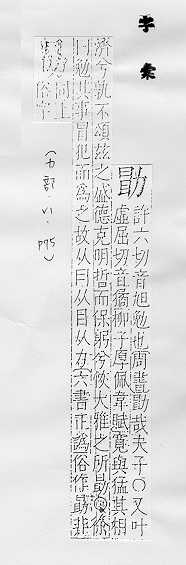 字彙
勖
許六切音旭勉也周書勖哉夫子○又叶
虛屈切音 柳子厚佩韋賦寬與猛其相
濟兮孰不頌茲之盛德克明哲而保躬兮恢大雅之所勖○徐
曰勉其事冒犯而為之故从曰从目从力○六書正譌俗作勗非
同上
俗字
(力部.VI.P75)